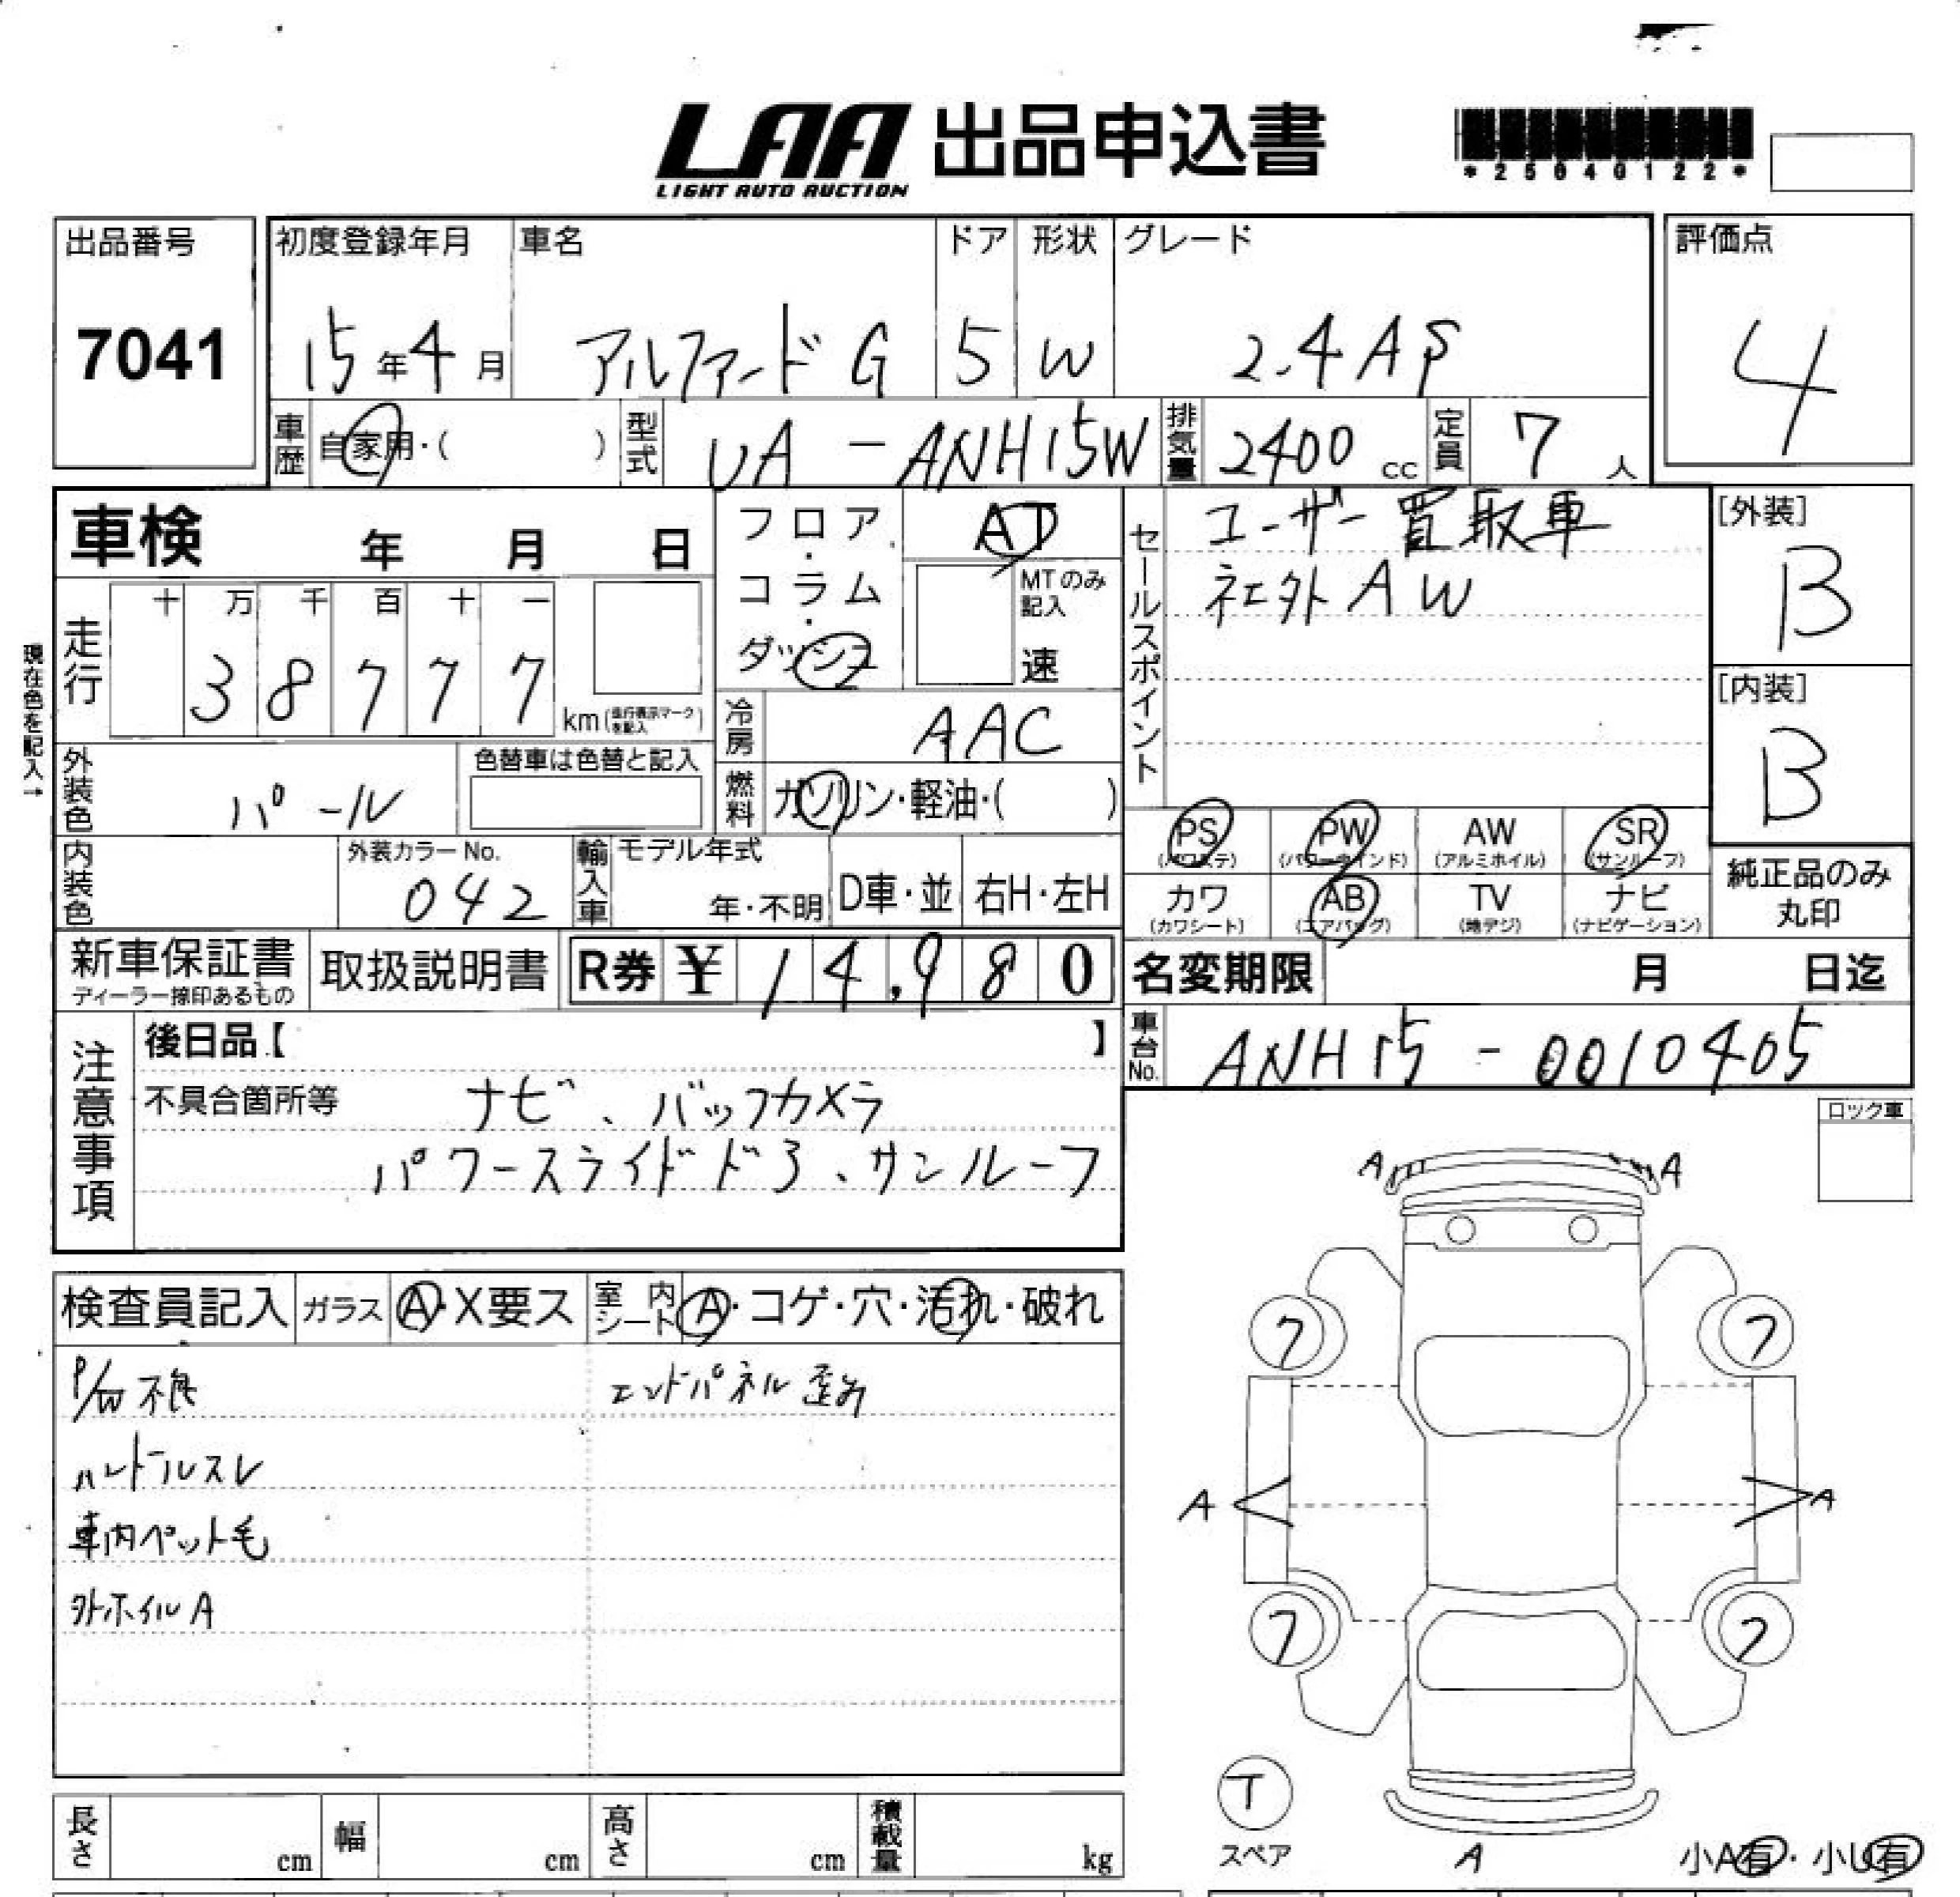 LAA 出品申込書
LIGHT AUTO AUCTION
*25040122*
出品番号
7041
初度登録年月
15年4月
車名
アルファード G
ドア
5
形状
W
グレード
2.4 AS
評価点
4
車歴
自家用・( )
型式
UA - ANH15W
排気量
2400 cc
定員
7 人
車検 年 月 日
フロア・コラム・ダッシュ
AT
MTのみ記入
速
セールスポイント
ユーザー買取車
社外AW
[外装]
B
[内装]
B
現在色を記入→
走行
十 万 千 百 十 一
3 8 7 7 7
km(走行表示マークを記入)
冷房
AAC
燃料
ガソリン・軽油・( )
外装色
パール
色替車は色替と記入
内装色
外装カラーNo.
042
輸入車
モデル年式
年・不明
D車・並
右H・左H
PS
(パワステ)
PW
(パワーウインド)
AW
(アルミホイル)
SR
(サンルーフ)
カワ
(カワシート)
AB
(エアバッグ)
TV
(地デジ)
ナビ
(ナビゲーション)
純正品のみ
丸印
新車保証書
ディーラー捺印あるもの
取扱説明書
R券 ¥ 14,980
名変期限 月 日迄
車台No.
ANH15 - 0010405
注意事項
後日品【 】
不具合箇所等
ナビ、バックカメラ
パワースライドドア、サンルーフ
ロック車
検査員記入
ガラス
A・X要ス
室内シート
A・コゲ・穴・汚れ・破れ
P/W不良
ハンドルスレ
車内ペット毛
外ホイルA
エンドパネル歪み
A
A
7
7
A
A
7
7
T
スペア
A
小A有・小U有
長さ
cm
幅
cm
高さ
cm
積載量
kg